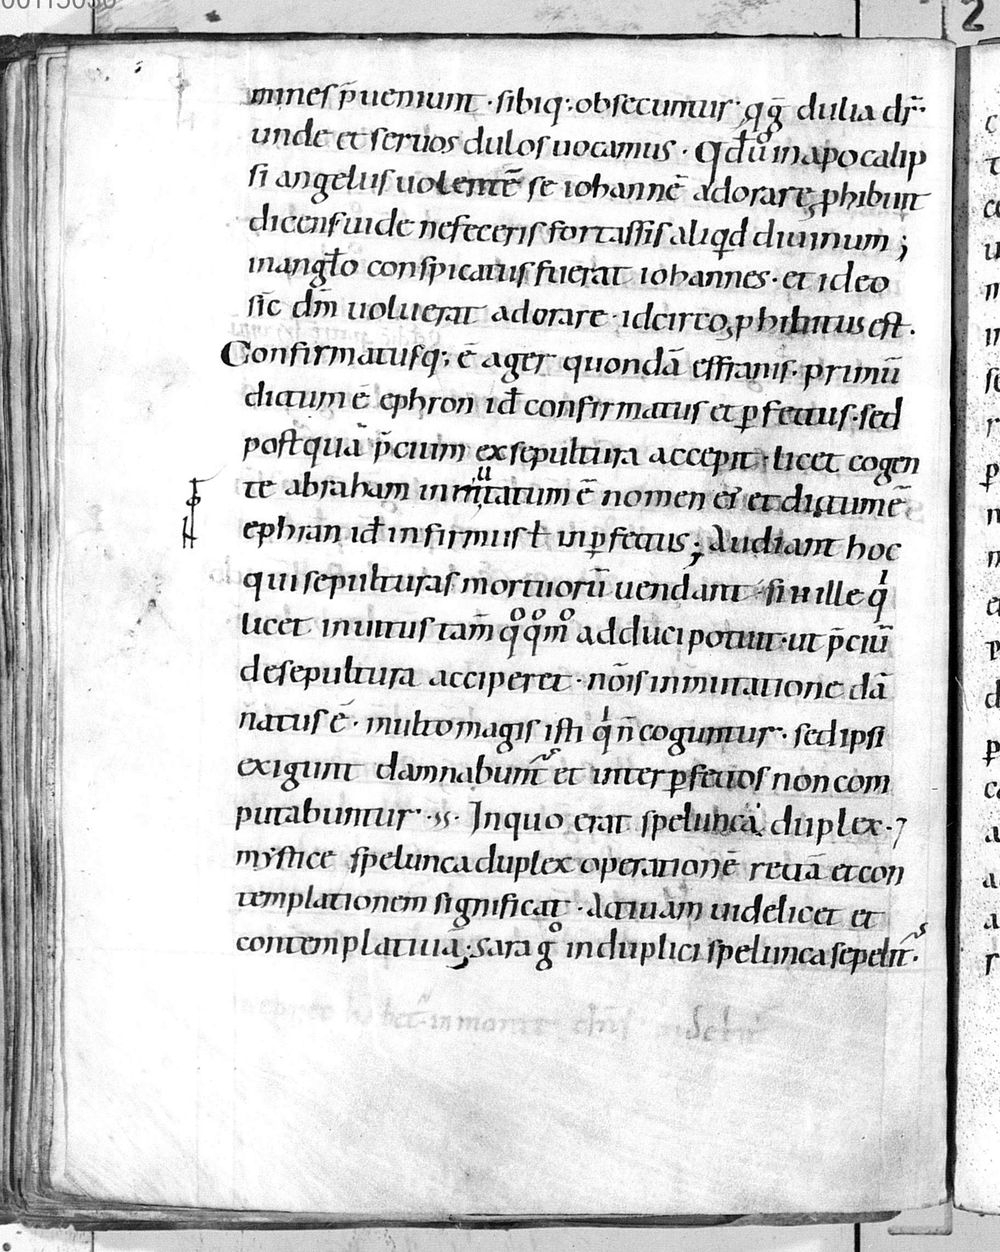 mines p̄ueniunt · sibiq; obsecuntur · q̄ g̅ dulia dr̄ ·
unde et seruos dulos uocamus · Qd̄ ů in apocalip
si angelus uolentē se iohannē adorare ꝓhibuit
dicens uide ne feceris fortassis aliqd diuinum ;
in angł̊o conspicatus fuerat iohannes · et ideo
sic̄ dm̄ uoluerat adorare · idcirco ꝓhibitus est ·
Confirmatusq; ē ager quondā effranis · primū
dictum ē ephron id̄ confirmatus et ꝑfectus · sed
postquā p̄cium ex sepultura accepit · licet cogen
te abraham inmutatum ē nomen ei' et dictum ē
ephran id̄ infirmus ł inꝑfectus ; Audiant hoc
qui sepulturas mortuorū uendant · si u ille qͥ
licet inuitus tam̄ qͦqͦmͦ adduci potuit · ut p̄ciū
de sepultura acciperet · nōis inmutatione dā
natus ē · multo magis isti qͥ n̄ coguntur · sed ipsi
exigunt damnabunt̃ et inter ꝑfectos non com
putabuntur · In quo erat spelunca duplex · ⁊
mystice spelunca duplex operationē rectā et con
templationem significat · Actiuam uidelicet et
contemplatiuā ; Sara gͦ in duplici spelunca sepelit̃ ·